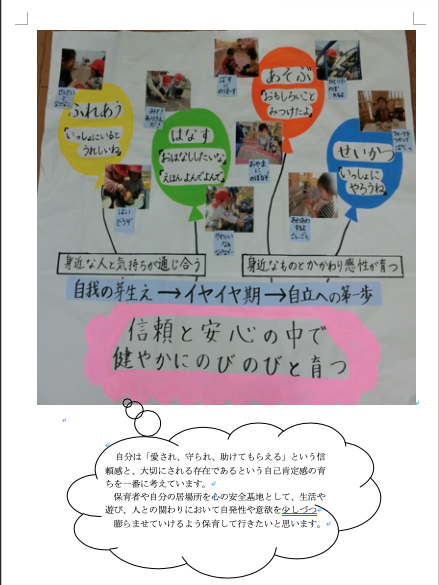 ふれあう
いっしょにいると
うれしいね
はなす
おはなししたいな
えほん よんでよんで
あそぶ
おもしろいこと
みつけたよ
せいかつ
いっしょに
やろうね
はい
どうぞ
おやま
に
のぼるぞ
身近な人と気持ちが通じ合う
身近なものとかかわり感性が育つ
自我の芽生え→イヤイヤ期→自立への第一歩
信頼と安心の中で
健やかにのびのびと育つ
自分は「愛され、守られ、助けてもらえる」という信
頼感と、大切にされる存在であるという自己肯定感の育
ちを一番に考えています。
保育者や自分の居場所を心の安全基地として、生活や
遊び、人との関わりにおいて自発性や意欲を少しづつ
膨らませていけるよう保育して行きたいと思います。